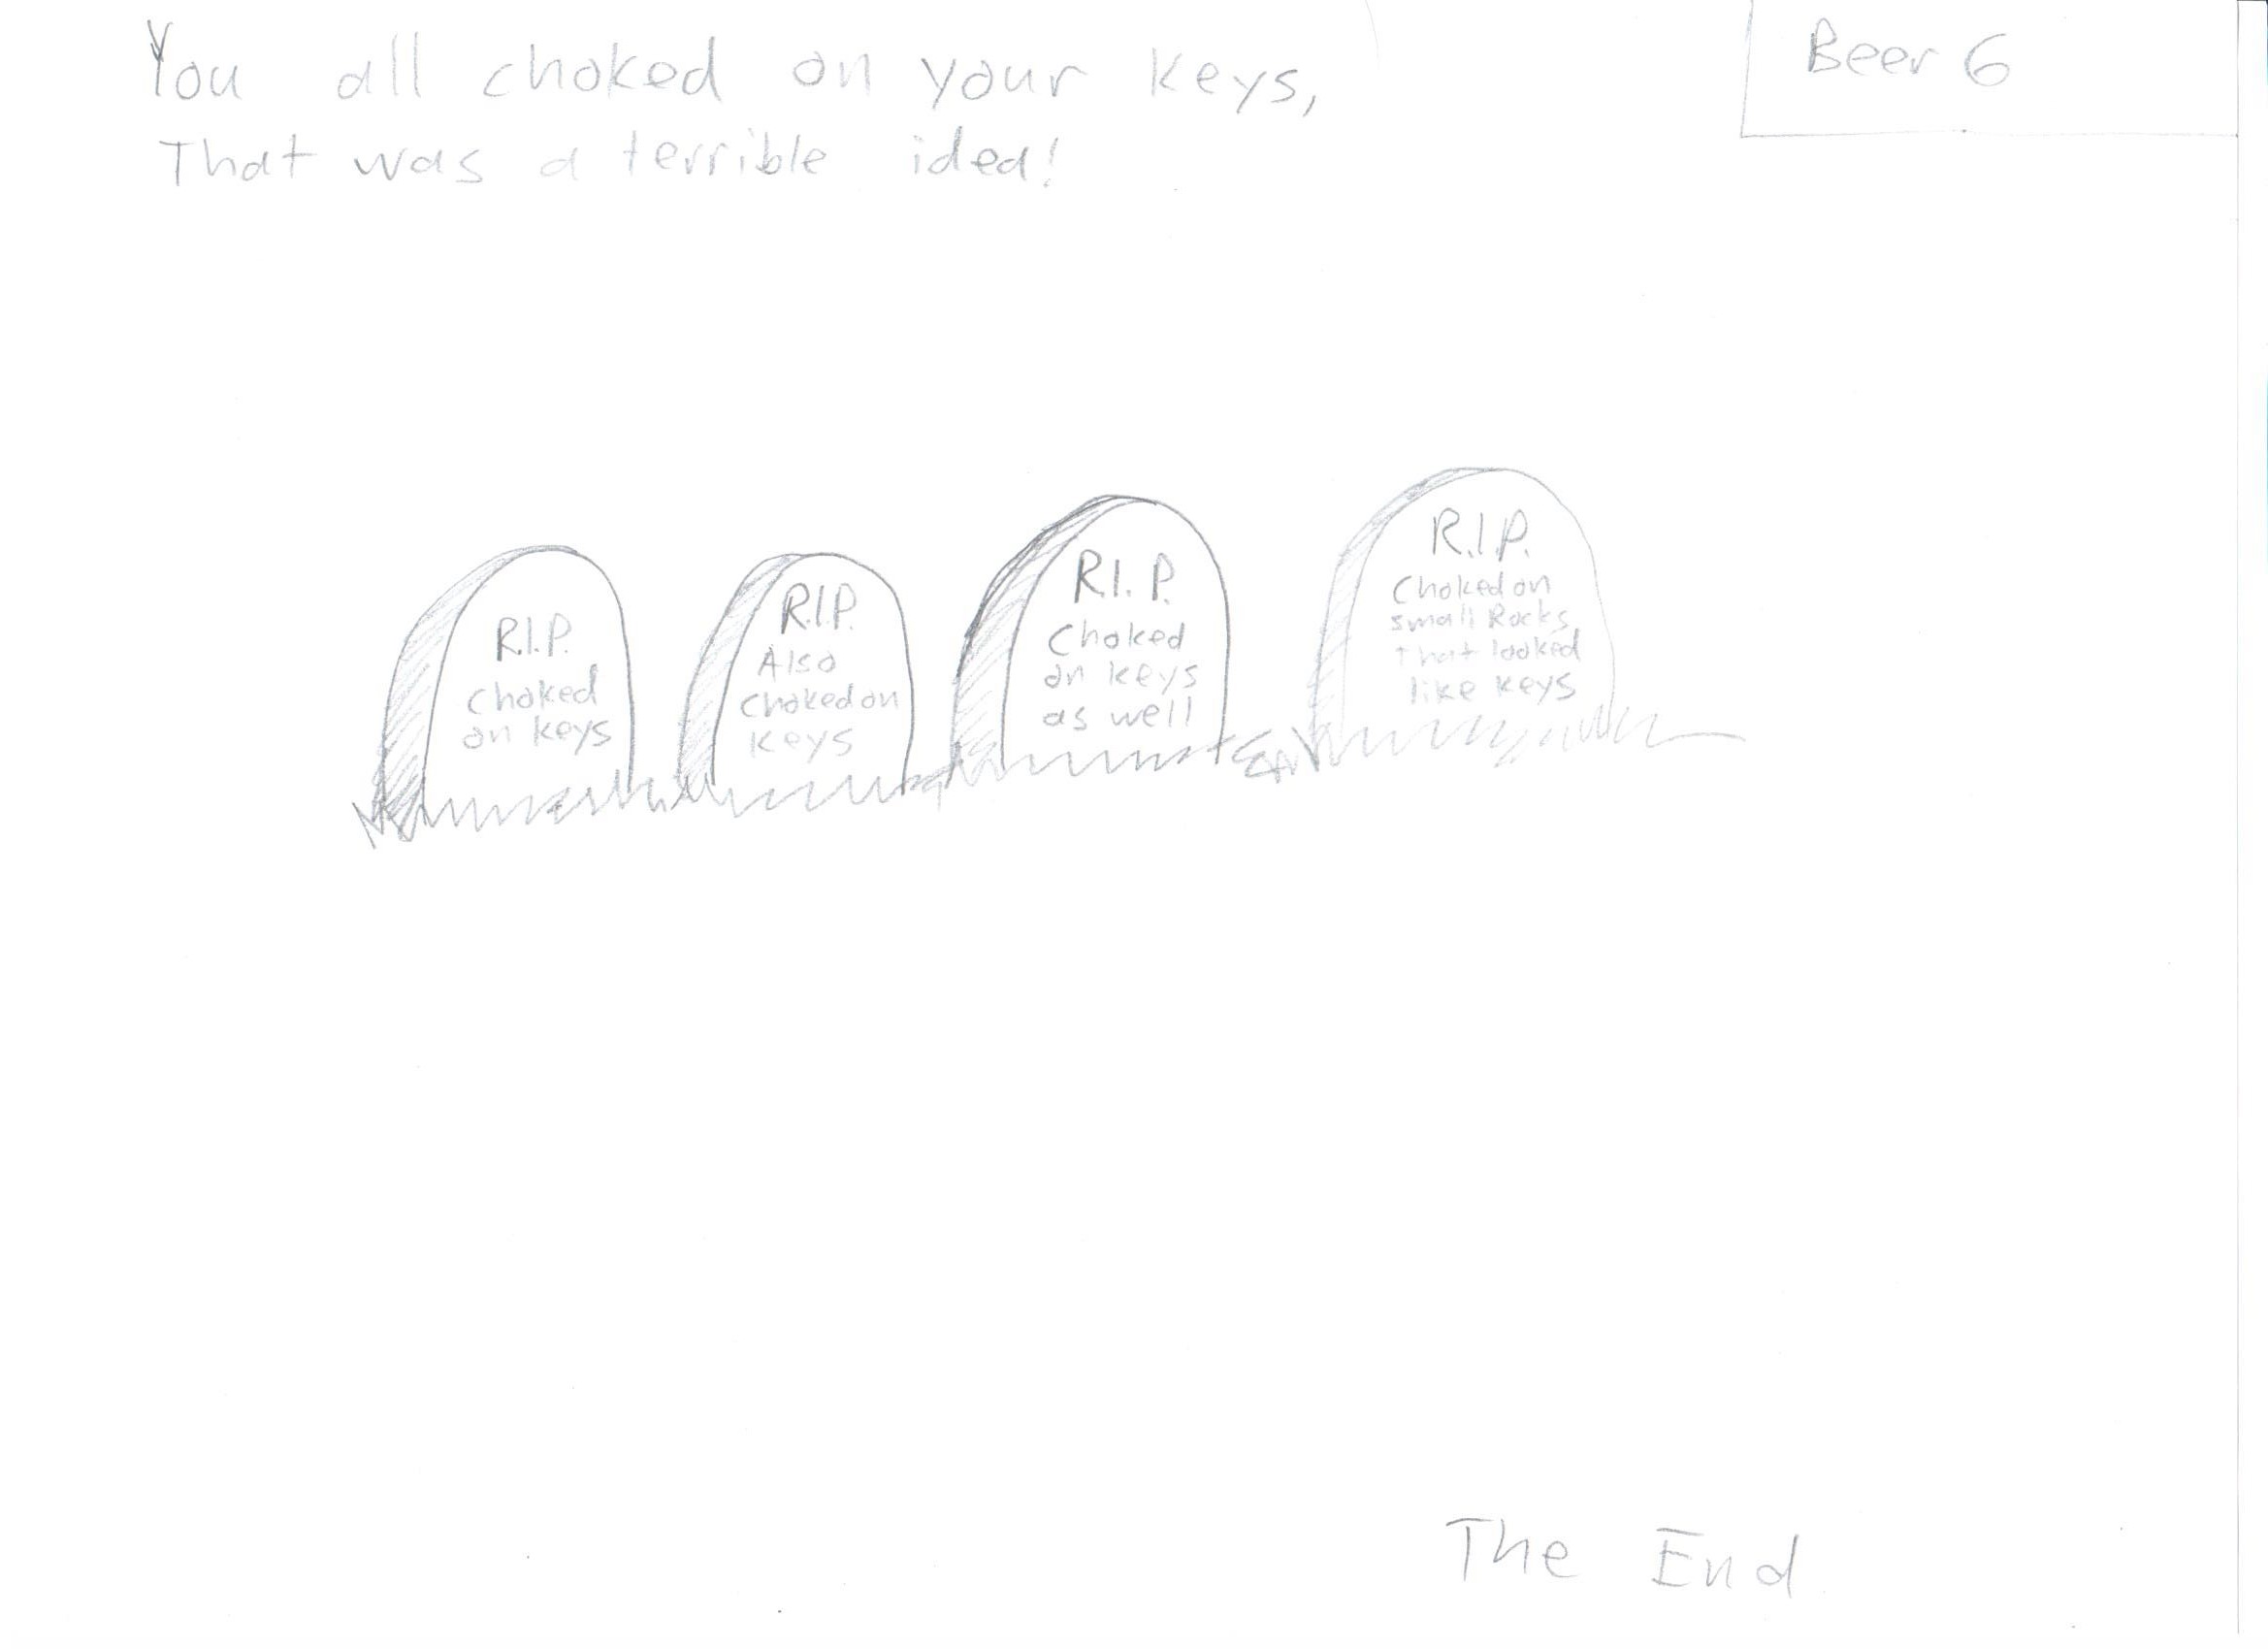 You all choked on your keys,
That was a terrible idea!
Beer 6
R.I.P.
Choked
on keys
R.I.P.
Also
Choked on
keys
R.I.P.
Choked
on keys
as well
R.I.P.
Choked on
small Rocks
That looked
like keys
The End